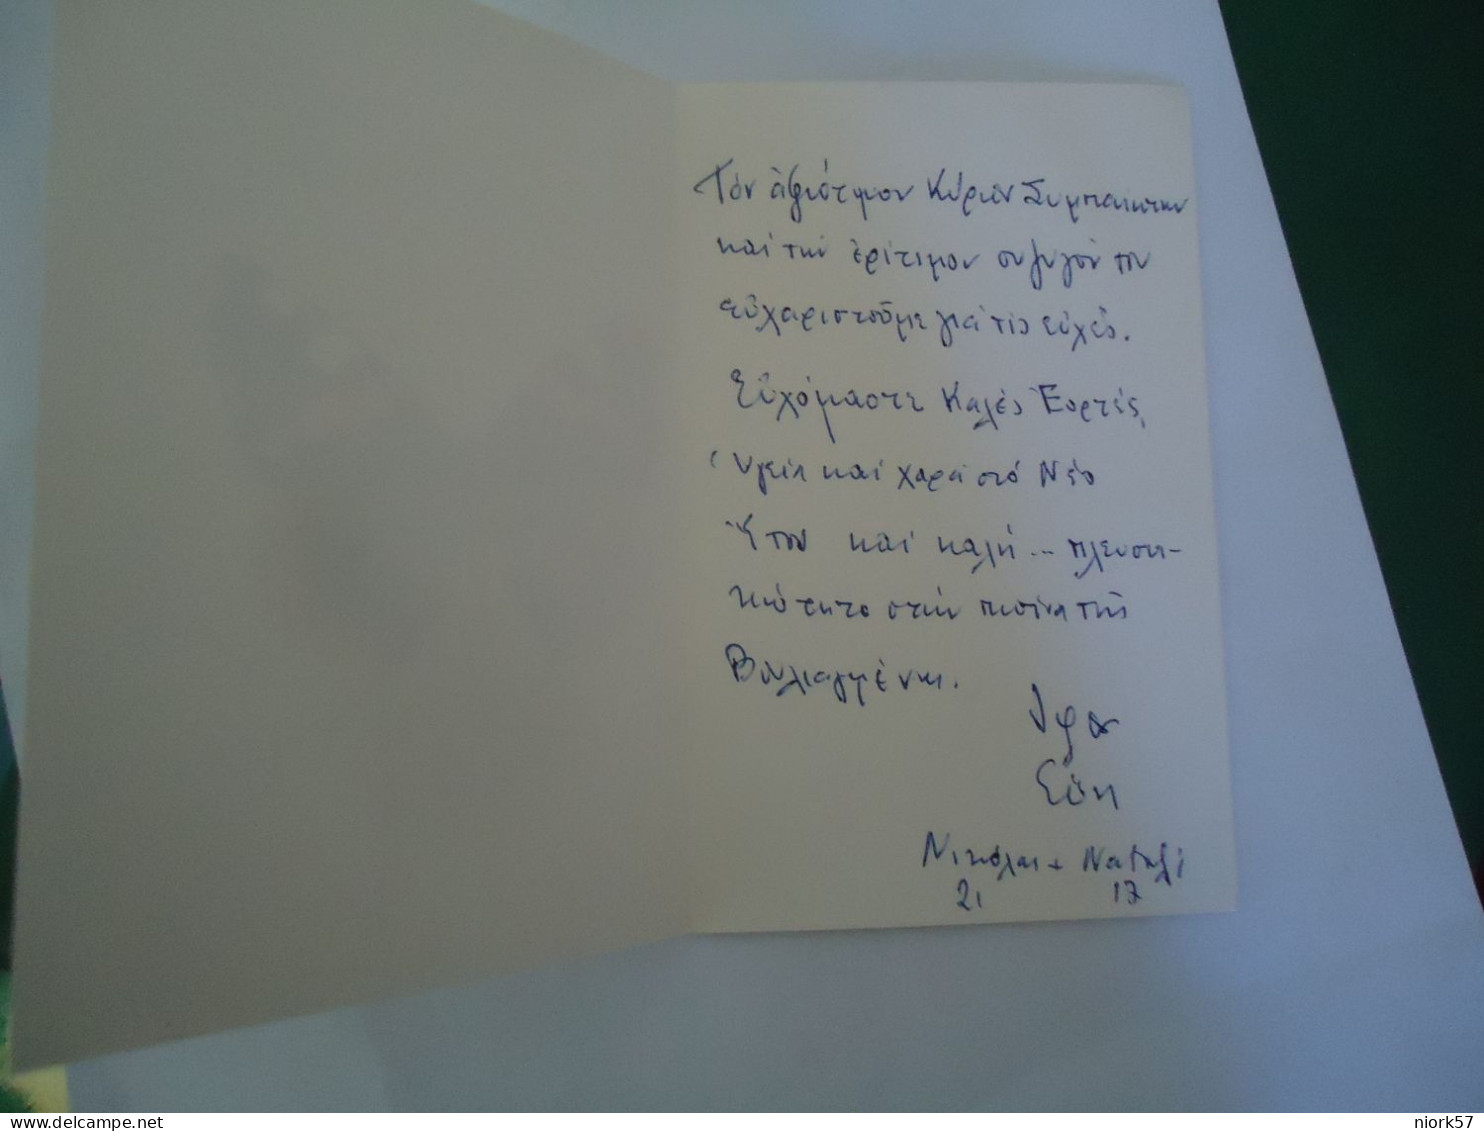 Τόν ἀξιότιμον Κύριον Συμπαίκτην
καί τήν ἐρίτιμον συζυγόν του
εὐχαριστοῦμε γιά τίς εὐχές.
Εὐχόμαστε Καλές Ἑορτές,
Ὑγεία καί χαρά στό Νέο
Ἔτος καί καλή... πλευστι-
κότητα στήν πισίνα τῆς
Βουλιαγμένης.
Εὔη
Νικόλαι + Ναταλί
21 17
delcampe.net
niork57